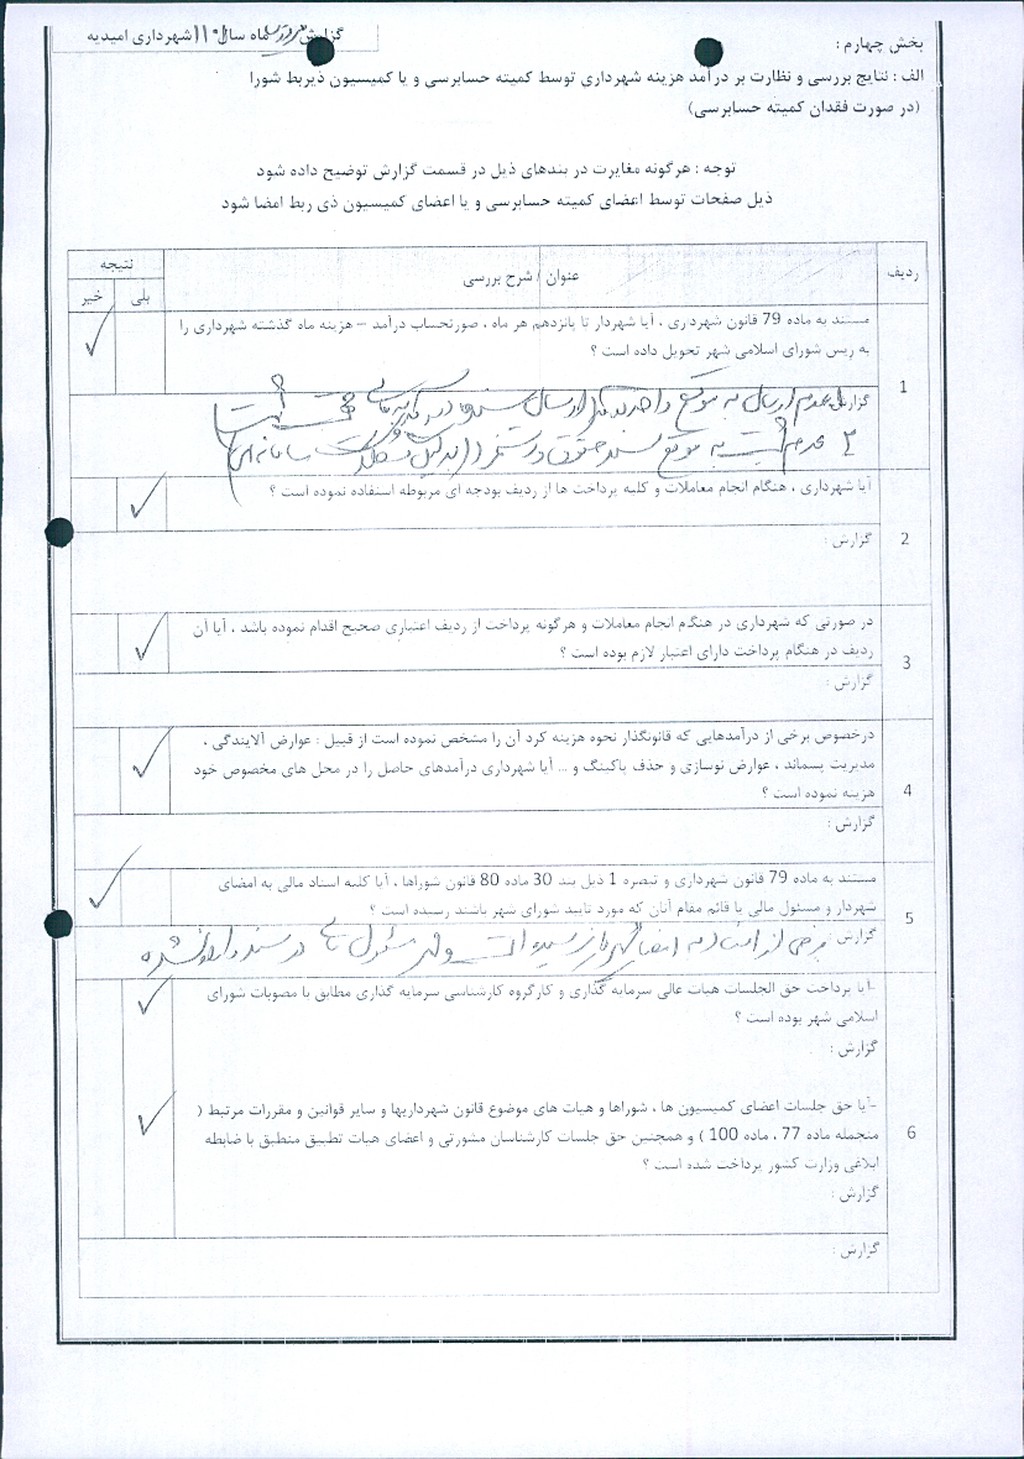 گزارش ماه سال شهرداری امیدیه
بخش چهارم :
الف : نتایج بررسی و نظارت بر درآمد هزینه شهرداری توسط کمیته حسابرسی و یا کمیسیون ذیربط شورا
(در صورت فقدان کمیته حسابرسی)
توجه : هرگونه مغایرت در بندهای ذیل در قسمت گزارش توضیح داده شود
ذیل صفحات توسط اعضای کمیته حسابرسی و یا اعضای کمیسیون ذی ربط امضا شود
ردیف عنوان / شرح بررسی نتیجه
بلی خیر
1
مستند به ماده 79 قانون شهرداری ، آیا شهردار تا پانزدهم هر ماه ، صورتحساب درآمد – هزینه ماه گذشته شهرداری را
به ریس شورای اسلامی شهر تحویل داده است ؟
گزارش عدم ارسال به موقع
۲ عدم به موقع سند حقوق
2
آیا شهرداری ، هنگام انجام معاملات و کلیه پرداخت ها از ردیف بودجه ای مربوطه استفاده نموده است ؟
گزارش :
3
در صورتی که شهرداری در هنگام انجام معاملات و هرگونه پرداخت از ردیف اعتباری صحیح اقدام نموده باشد ، آیا آن
ردیف در هنگام پرداخت دارای اعتبار لازم بوده است ؟
گزارش :
4
درخصوص برخی از درآمدهایی که قانونگذار نحوه هزینه کرد آن را مشخص نموده است از قبیل : عوارض آلایندگی ،
مدیریت پسماند ، عوارض نوسازی و حذف پاکینگ و ... آیا شهرداری درآمدهای حاصل را در محل های مخصوص خود
هزینه نموده است ؟
گزارش :
5
مستند به ماده 79 قانون شهرداری و تبصره 1 ذیل بند 30 ماده 80 قانون شوراها ، آیا کلیه اسناد مالی به امضای
شهردار و مسئول مالی یا قائم مقام آنان که مورد تایید شورای شهر باشند رسیده است ؟
گزارش برخی از اسناد به امضا نرسیده است مسئول مالی در سند
6
-آیا پرداخت حق الجلسات هیات عالی سرمایه گذاری و کارگروه کارشناسی سرمایه گذاری مطابق با مصوبات شورای
اسلامی شهر بوده است ؟
گزارش :
-آیا حق جلسات اعضای کمیسیون ها ، شوراها و هیات های موضوع قانون شهرداریها و سایر قوانین و مقررات مرتبط (
منجمله ماده 77 ، ماده 100 ) و همچنین حق جلسات کارشناسان مشورتی و اعضای هیات تطبیق منطبق با ضابطه
ابلاغی وزارت کشور پرداخت شده است ؟
گزارش :
گزارش :